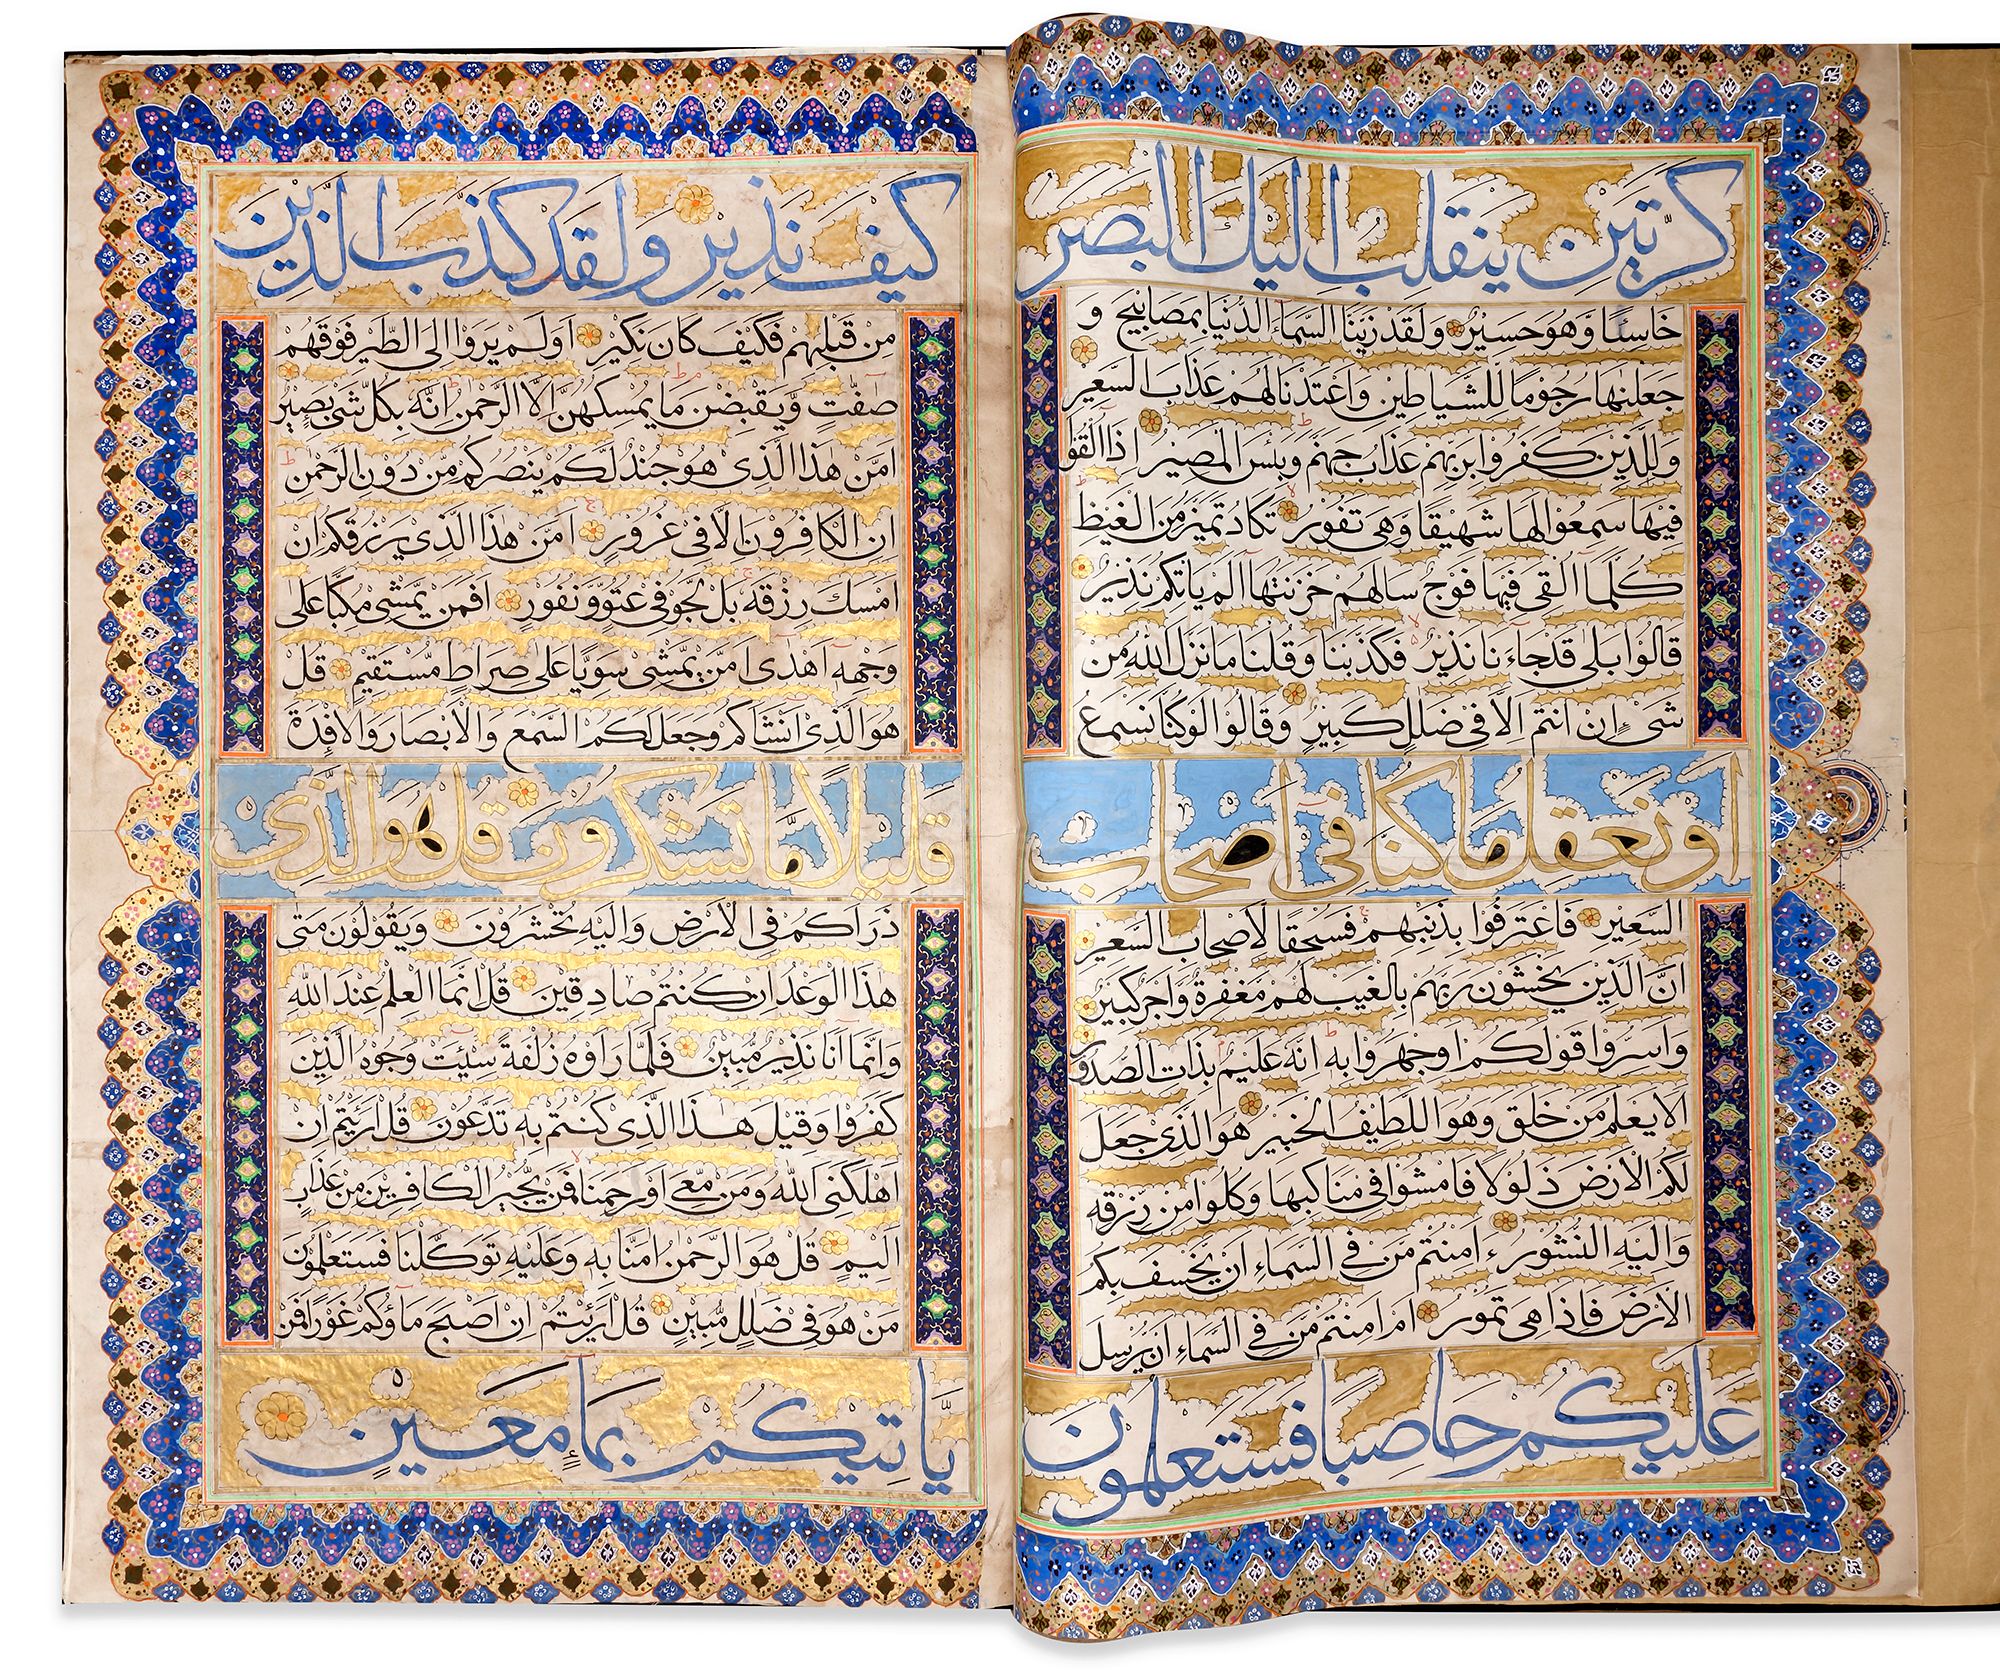 كرتين ينقلب اليك البصر
خاسئا وهو حسير ولقد زينا السماء الدنيا بمصابيح و
جعلنها رجوما للشياطين واعتدنا لهم عذاب السعير
وللذين كفروا بربهم عذاب جهنم وبئس المصير اذا القوا
فيها سمعوا لها شهيقا وهى تفور تكاد تميز من الغيظ
كلما القى فيها فوج سالهم خزنتها الم ياتكم نذير
قالوا بلى قد جاءنا نذير فكذبنا وقلنا ما نزل الله من
شىء ان انتم الا فى ضلل كبير وقالوا لو كنا نسمع
او نعقل ما كنا فى اصحاب
السعير فاعترفوا بذنبهم فسحقا لاصحاب السعير
ان الذين يخشون ربهم بالغيب لهم مغفرة واجر كبير
واسروا قولكم او جهروا به انه عليم بذات الصدور
الا يعلم من خلق وهو اللطيف الخبير هو الذى جعل
لكم الارض ذلولا فامشوا فى مناكبها وكلوا من رزقه
واليه النشور ءامنتم من فى السماء ان يخسف بكم
الارض فاذا هى تمور ام امنتم من فى السماء ان يرسل
عليكم حاصبا فستعلمون
كيف نذير ولقد كذب الذين
من قبلهم فكيف كان نكير اولم يروا الى الطير فوقهم
صفت ويقبضن ما يمسكهن الا الرحمن انه بكل شئ بصير
امن هذا الذى هو جند لكم ينصركم من دون الرحمن
ان الكافرون الا فى غرور امن هذا الذى يرزقكم ان
امسك رزقه بل لجوا فى عتو ونفور افمن يمشى مكبا على
وجهه اهدى امن يمشى سويا على صراط مستقيم قل
هو الذى انشاكم وجعل لكم السمع والابصار والافدة
قليلا ما تشكرون قل هو الذى
ذراكم فى الارض واليه تحشرون ويقولون متى
هذا الوعد ان كنتم صادقين قل انما العلم عند الله
وانما انا نذير مبين فلما راوه زلفة سيئت وجوه الذين
كفروا وقيل هذا الذى كنتم به تدعون قل ارئيتم ان
اهلكنى الله ومن معى او رحمنا فمن يجير الكافرين من عذاب
اليم قل هو الرحمن امنا به وعليه توكلنا فستعلمون
من هو فى ضلل مبين قل ارئيتم ان اصبح ماؤكم غورا فمن
ياتيكم بماء معين